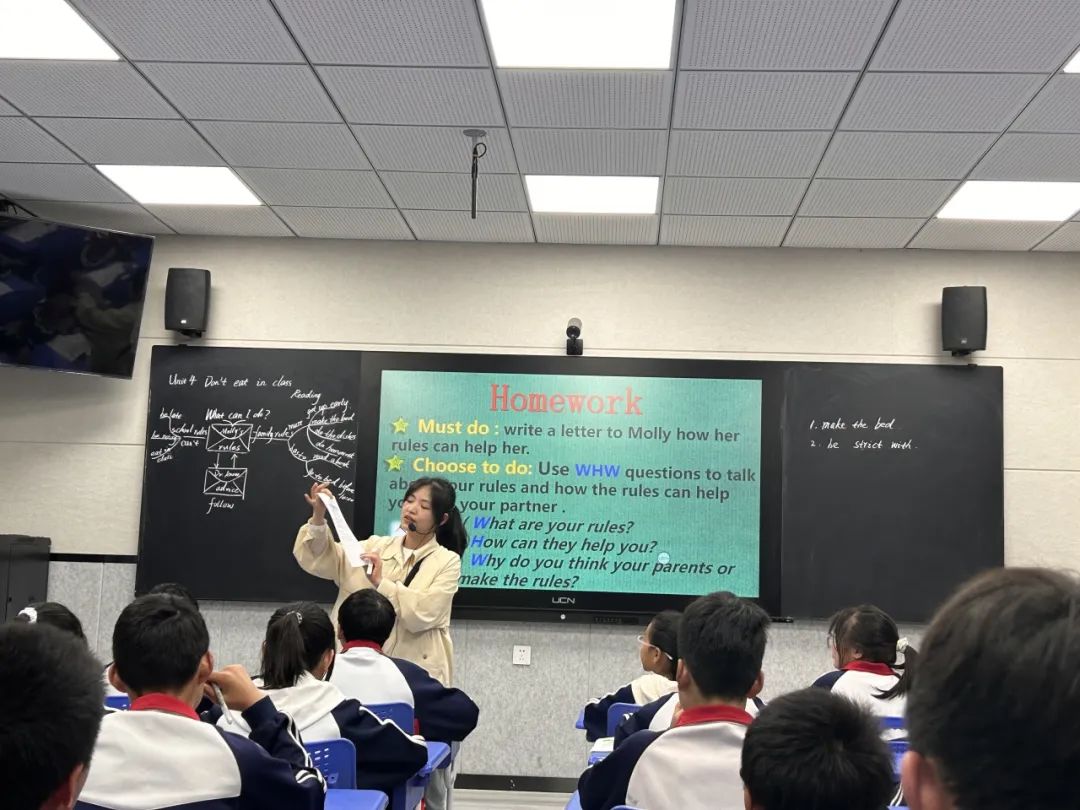 Unit 4 Don't eat in class
Reading
What can I do?
be late
school rules
can't
eat in class
Molly's rules
family rules
must
get up early
make the bed
do the dishes
do homework
read a book
go to bed before
Dr. Know
advice
follow
Homework
Must do : write a letter to Molly how her
rules can help her.
Choose to do: Use WHW questions to talk
your rules and how the rules can help
your partner .
What are your rules?
How can they help you?
Why do you think your parents or
make the rules?
UCN
1. make the bed.
2. be strict with.